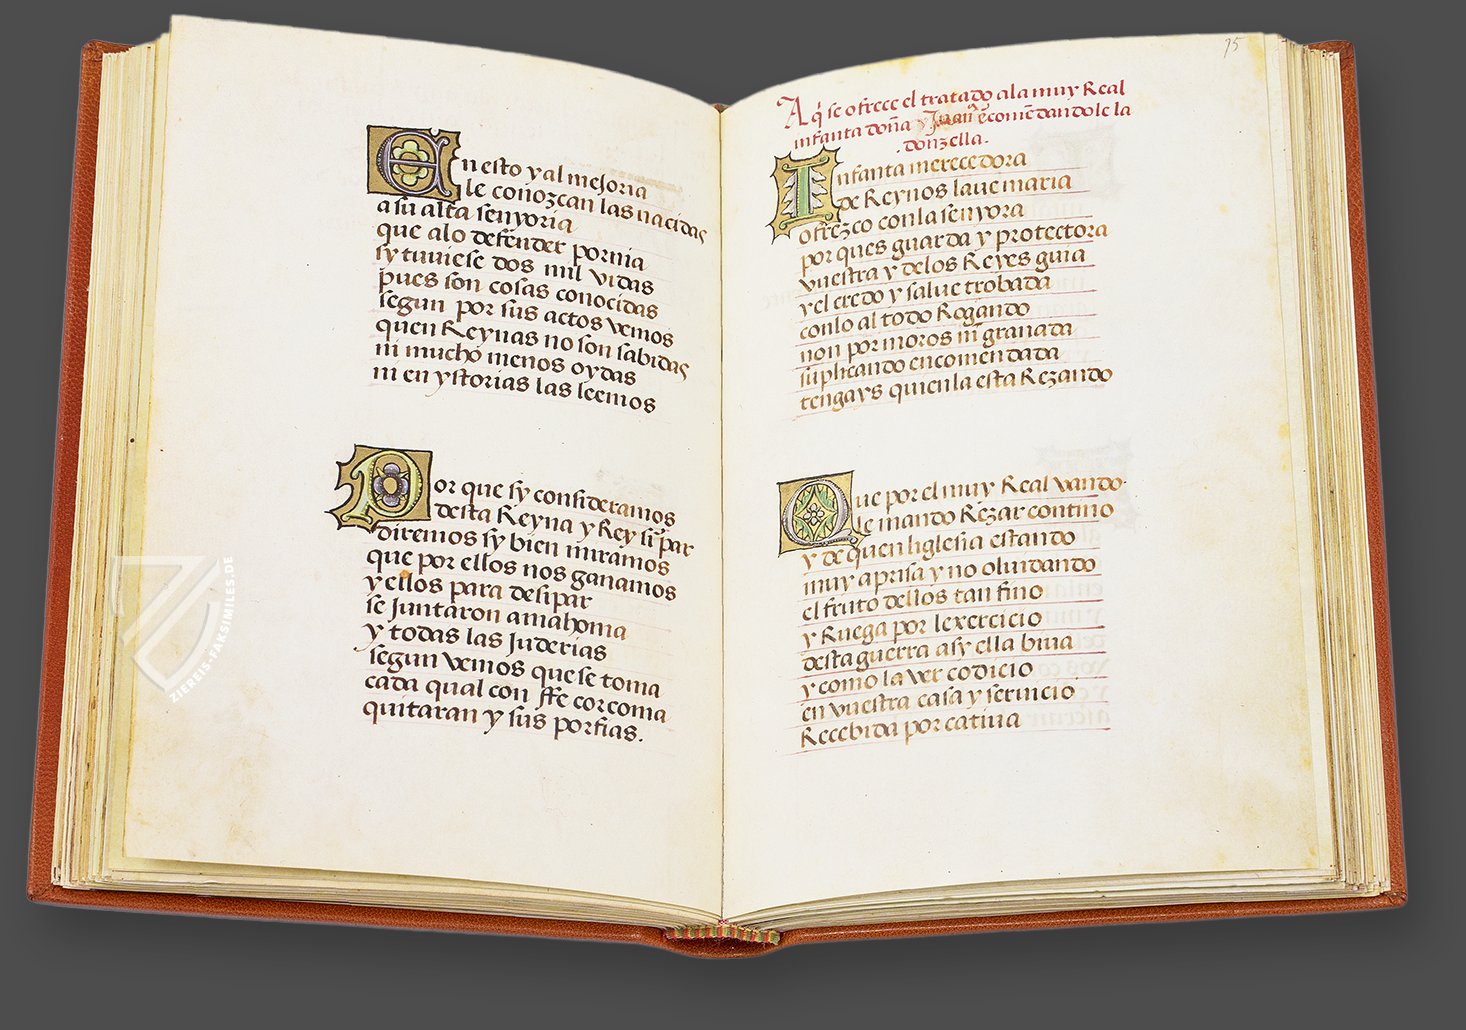 En esto y al mejoria
le conozcan las nacidas
a su alta senyoria
que alo defender pornia
sy tuviese dos mil vidas
pues son cosas conocidas
segun por sus actos vemos
quen Reynas no son sabidas
ni mucho menos oydas
ni en ystorias las leemos
Por que sy consideramos
desta Reyna y Rey si par
diremos sy bien miramos
que por ellos nos ganamos
y ellos para desipar
se juntaron a mahoma
y todas las Juderias
segun vemos que se toma
cada qual con ffe corcoma
quitaran y sus porfias.
75
Aq̇ se ofrece el tratado ala muy Real
infanta doña Juana ecomēdandole la
.donzella.
Infanta merecedora
de Reynos laue maria
ofrezco conla senyora
por ques guarda y protectora
vuestra y delos Reyes guia
y el credo y salue trobada
conlo al todo Rogando
non por moros nī granada
suplicando encomendada
tengays quien la esta Rezando
Que por el muy Real vando
le mando Rezar contino
y de quen liglesia estando
muy aprisa y no oluidando
el fruto dellos tan fino
y Ruega por lexercicio
desta guerra asy ella biua
y como la ver codicio
en vuestra casa y seruicio
Recebida por catiua
ZIEREIS-FAKSIMILES.DE